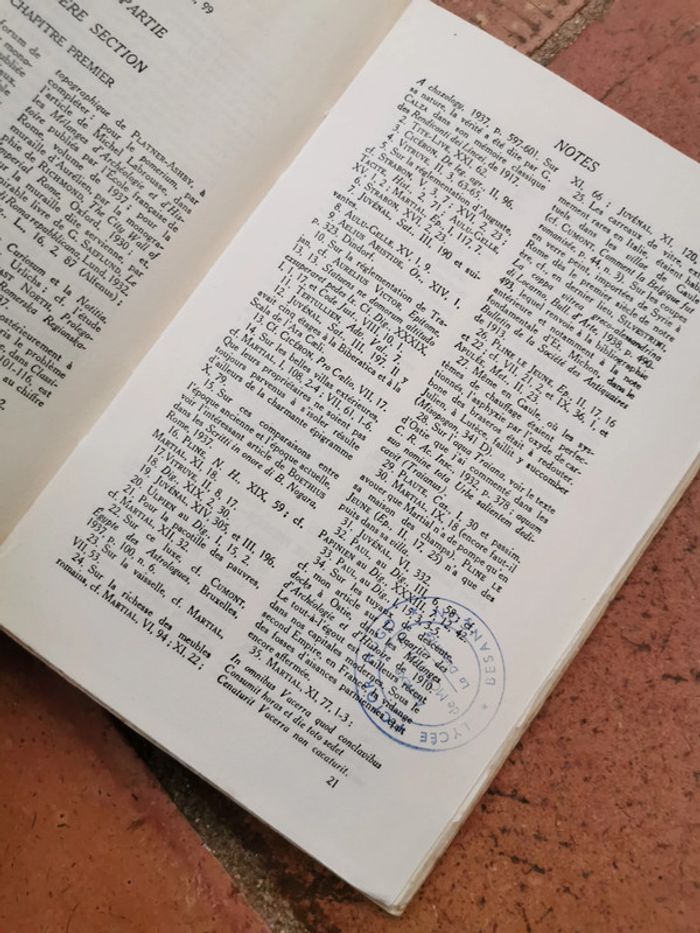 , 99
PARTIE
ÈRE SECTION
CHAPITRE PREMIER
topographique de PLATNER-ASHBY, à
compléter : pour le pomerium, par
l'article de Michel Labrousse, dans
les Mélanges d'Archéologie et d'His-
toire publiés par l'École française de
Rome, volume de 1937 ;
muraille d'Aurélien, par la monogra-
phie de RICHMOND, The City Wall of
Rome, Oxford, 1930 ; et
la muraille dite servienne,
livre de G. SAEFLUND, Le
Roma repubblicana, Lund, 1932.
L, 16, 2, 87 (Alfenus) ;
NOTES
A chazology, 1937, p. 597-601. Sur
sa nature, la vérité a été dite par G.
CALZA dans son mémoire classique
des Rendiconti dei Lincei, de 1917.
2. TITE-LIVE, XXI, 62.
3. CICÉRON, De leg. agr., II, 96.
4. VITRUVE, II, 3, 63-65.
5. Sur la réglementation d'Auguste,
cf. STRABON, V, 3, 7 ; AULU-GELLE,
TACITE, Hist., I, 71 ; XVI, 2, 5 ;
XV, 1, 2 ; MARTIAL, Ep., I, 117, 7.
6. STRABON, XVI, 2, 23.
7. JUVÉNAL, Sat., III, 190 et sui-
vantes.
8. AULU-GELLE, XV, 1, 9.
9. AELIUS ARISTIDE, Or., XIV, 1,
p. 323 Dindorf.
10. Sur la réglementation de Tra-
jan, cf. AURELIUS VICTOR, Epitome,
13, 13. Statuens ne domorum altitudo
exuperaret pedes LX. Cf. Dig., XXXIX,
1, 1, 17, et Code Just., VIII, 10, 1.
11. TERTULLIEN, Adv. Val., 7.
12. JUVÉNAL, Ser., III, 197, Il y
avait cinq étages à la Biberatica et à la
Scala de l'Ara Celi.
13. Cf. CICÉRON, Pro Celio, VII, 17.
14. Sur les belles villas extérieures,
cf. MARTIAL, I, 108, 124, VII, 61, 1-6.
Que leurs propriétaires ne soient pas
toujours parvenus à s'isoler résulte
d'ailleurs de la charmante épigramme
X, 79.
15. Sur ces comparaisons entre
l'époque ancienne et l'époque actuelle,
voir l'intéressant article de BOETHIUS
dans les Scritti in onore di B. Nogara,
Rome, 1937.
16. PLINE, N. H., XIX, 59 ; cf.
MARTIAL XI, 18.
17. VITRUVE, II, 8, 17.
18. Dig., XIX, 2, 30.
19. JUVÉNAL, XIV, 305, et III, 196.
20. ULPIEN au Dig., I, 15, 2.
21. Pour la pacotille des pauvres,
cf. MARTIAL, XII, 32.
22. Sur ce luxe, cf. CUMONT,
Égypte des Astrologues, Bruxelles,
1937, p. 100, n. 6.
23. Sur la vaisselle, cf. MARTIAL,
VII, 53.
24. Sur la richesse des meubles
romains, cf. MARTIAL, VI, 94 ; XI, 22 ;
XI, 66 ; JUVÉNAL, XI, 120.
25. Les carreaux de vitre,
tuels dans les villes de Gaule
(cf. CUMONT, Comment la Belgique fut
romanisée, p. 44, n. 3). Sur les coupes
en verre peint, importées de Syrie à
Rome dès le premier siècle de notre
ère, cf. en dernier lieu, C. SILVESTRINI,
La coppa vitrea greco-alessandrina
di Locarno, Bull. d'Arte, 1938, p. 490-
493, lequel renvoie à la bibliographie
antérieure et notamment à la note
fondamentale d'Ét. Michon, dans le
Bulletin de la Société des Antiquaires
de 1913.
26. PLINE LE JEUNE, Ep., II, 17, 16
et 22 ; cf. VII, 21, 2 et IX, 36, 1, et
APULÉE, Met., II, 23.
27. Même en Gaule, où les sys-
tèmes de chauffage étaient perfec-
tionnés, l'asphyxie par l'oxyde de car-
bone des braseros était à redouter.
Julien, à Lutèce, faillit y succomber
(Misopogon, 341 D).
28. Sur l'aqua Traiana, voir le texte
d'Ostie que j'ai commenté dans les
C. R. Ac. Inscr., 1932, p. 378 : aquam
suo nomine tota Urbe salientem dedi-
cavit (Traianus).
29. PLAUTE, Cas., I, 30 et passim.
30. MARTIAL, IX, 18 (encore faut-il
avouer que Martial n'a de pompe qu'en
sa maison des champs). PLINE LE
JEUNE (Ep., II, 17, 25) n'a que des
puits dans sa villa.
31. JUVÉNAL, VI, 332.
32. PAUL, au Dig., III, 6, 58.
PAPINIEN au Dig., XXXIII, 7, 12, 42.
33. PAUL, au Dig., I, 15, 3, 5.
34. Sur les tuyaux de descente,
cf. mon article sur Le Quartier des
docks, à Ostie, dans les Mélanges
d'Archéologie et d'Histoire de 1910.
Le tout-à-l'égout est d'ailleurs récent
dans nos capitales modernes. Sous le
second Empire en France, la vidange
des fosses d'aisances parisiennes était
encore affermée.
35. MARTIAL, XI, 77, 1-3 :
In omnibus Vacerra quod conclavibus
Consumit horas et die toto sedet
Cenaturit Vacerra non cacaturit.
21
LYCÉE
BESAN